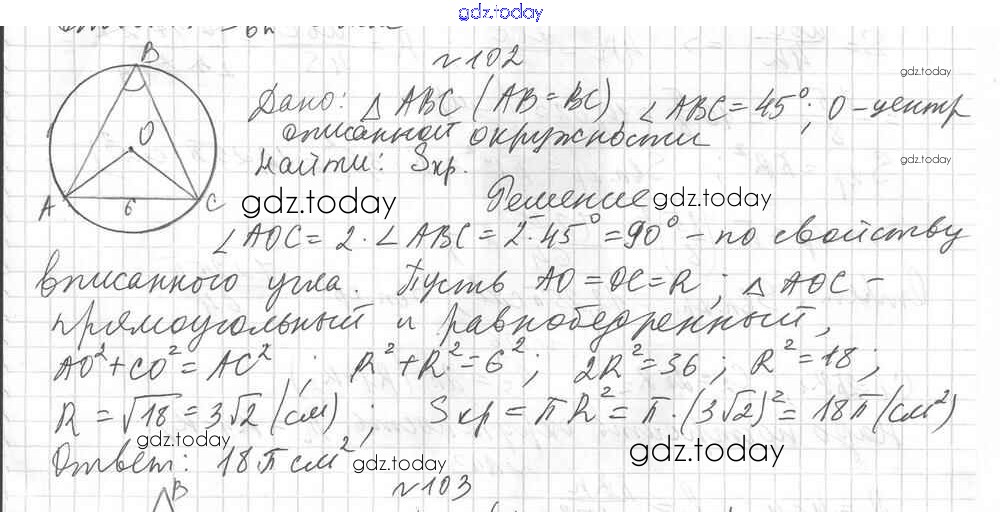 gdz.today
№102
B
Дано: △ABC (AB=BC), ∠ABC=45°; O-центр
gdz.today
описанной окружности
O
Найти: Sкр.
gdz.today
A 6 C
gdz.today
Решение
gdz.today
∠AOC = 2·∠ABC = 2·45° = 90° - по свойству
вписанного угла. Пусть AO=OC=R; △AOC -
прямоугольный и равнобедренный,
AO²+CO²=AC²; R²+R²=6²; 2R²=36; R²=18;
R=√18=3√2 (см); Sкр=πR²=π·(3√2)²=18π (см²)
gdz.today
Ответ: 18π см²
gdz.today
gdz.today
№103
B